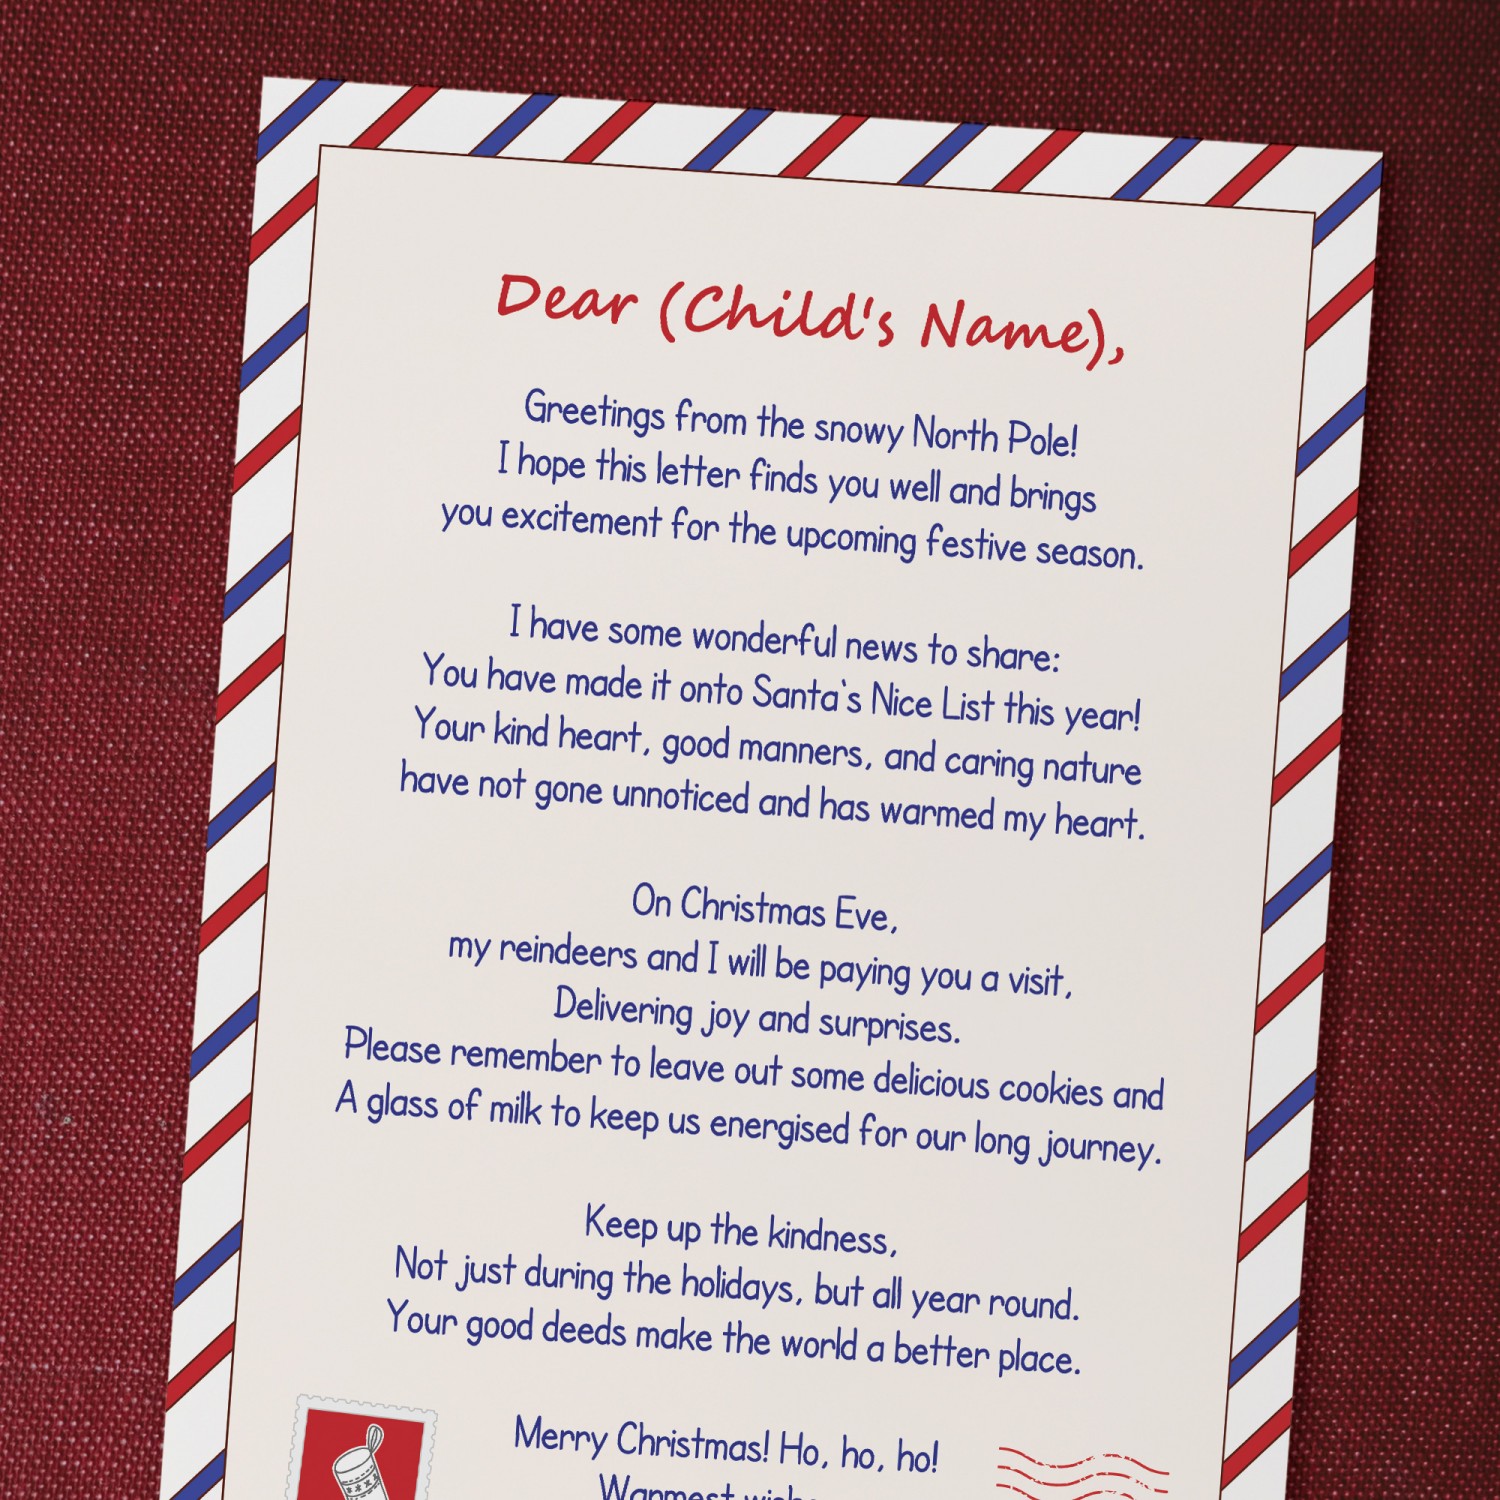 Dear (Child's Name),
Greetings from the snowy North Pole!
I hope this letter finds you well and brings
you excitement for the upcoming festive season.
I have some wonderful news to share:
You have made it onto Santa`s Nice List this year!
Your kind heart, good manners, and caring nature
have not gone unnoticed and has warmed my heart.
On Christmas Eve,
my reindeers and I will be paying you a visit,
Delivering joy and surprises.
Please remember to leave out some delicious cookies and
A glass of milk to keep us energised for our long journey.
Keep up the kindness,
Not just during the holidays, but all year round.
Your good deeds make the world a better place.
Merry Christmas! Ho, ho, ho!
Warmest